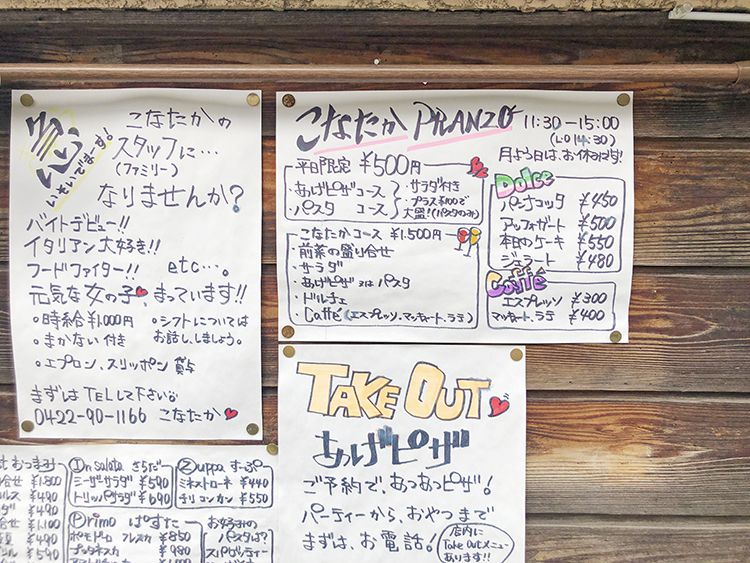 急
いそいでまーす!
こなたかの
スタッフに…
(ファミリー)
なりませんか?
バイトデビュー!!
イタリアン大好き!!
フードファイター!! etc…。
元気な女の子まっています!!
・時給¥1,000円
・まかない付き
・エプロン、スリッポン貸与
・シフトについては
お話ししましょう。
まずはTELして下さい
0422-90-1166 こなたか
こなたか PRANZO
11:30-15:00
(L.O 14:30)
月ようび日は、お休みです!
平日限定 ¥500円
・あげピザコース
・パスタ コース
・サラダ付き
・プラス¥100で
大盛!(パスタのみ)
こなたかコース ¥1.500円
・前菜の盛り合せ
・サラダ
・あげピザ 又は パスタ
・ドルチェ
・Caffé (エスプレッソ、マッキャート、ラテ)
Dolce
パンナコッタ ¥450
アッフォガート ¥500
本日のケーキ ¥550
ジェラート ¥480
Caffé
エスプレッソ ¥300
マッキャート、ラテ ¥400
TAKE OUT
あげピザ
ご予約で、あつあつピザ!
パーティーから、おやつまで
まずは、お電話!
店内に
Take Outメニュー
あります!!
おつまみ
合せ ¥1.800
¥490
¥490
合せ ¥1.100
¥490
¥590
① Insalata さらだ
シーザーサラダ ¥590
トリッパサラダ ¥690
② Zuppa すーぷ
ミネストローネ ¥440
チリコンカン ¥550
Ⓟrimo ぱすた
ポモドーロ フレスカ ¥850
プッタネスカ ¥980
お好みの
パスタは?
スパゲッティー